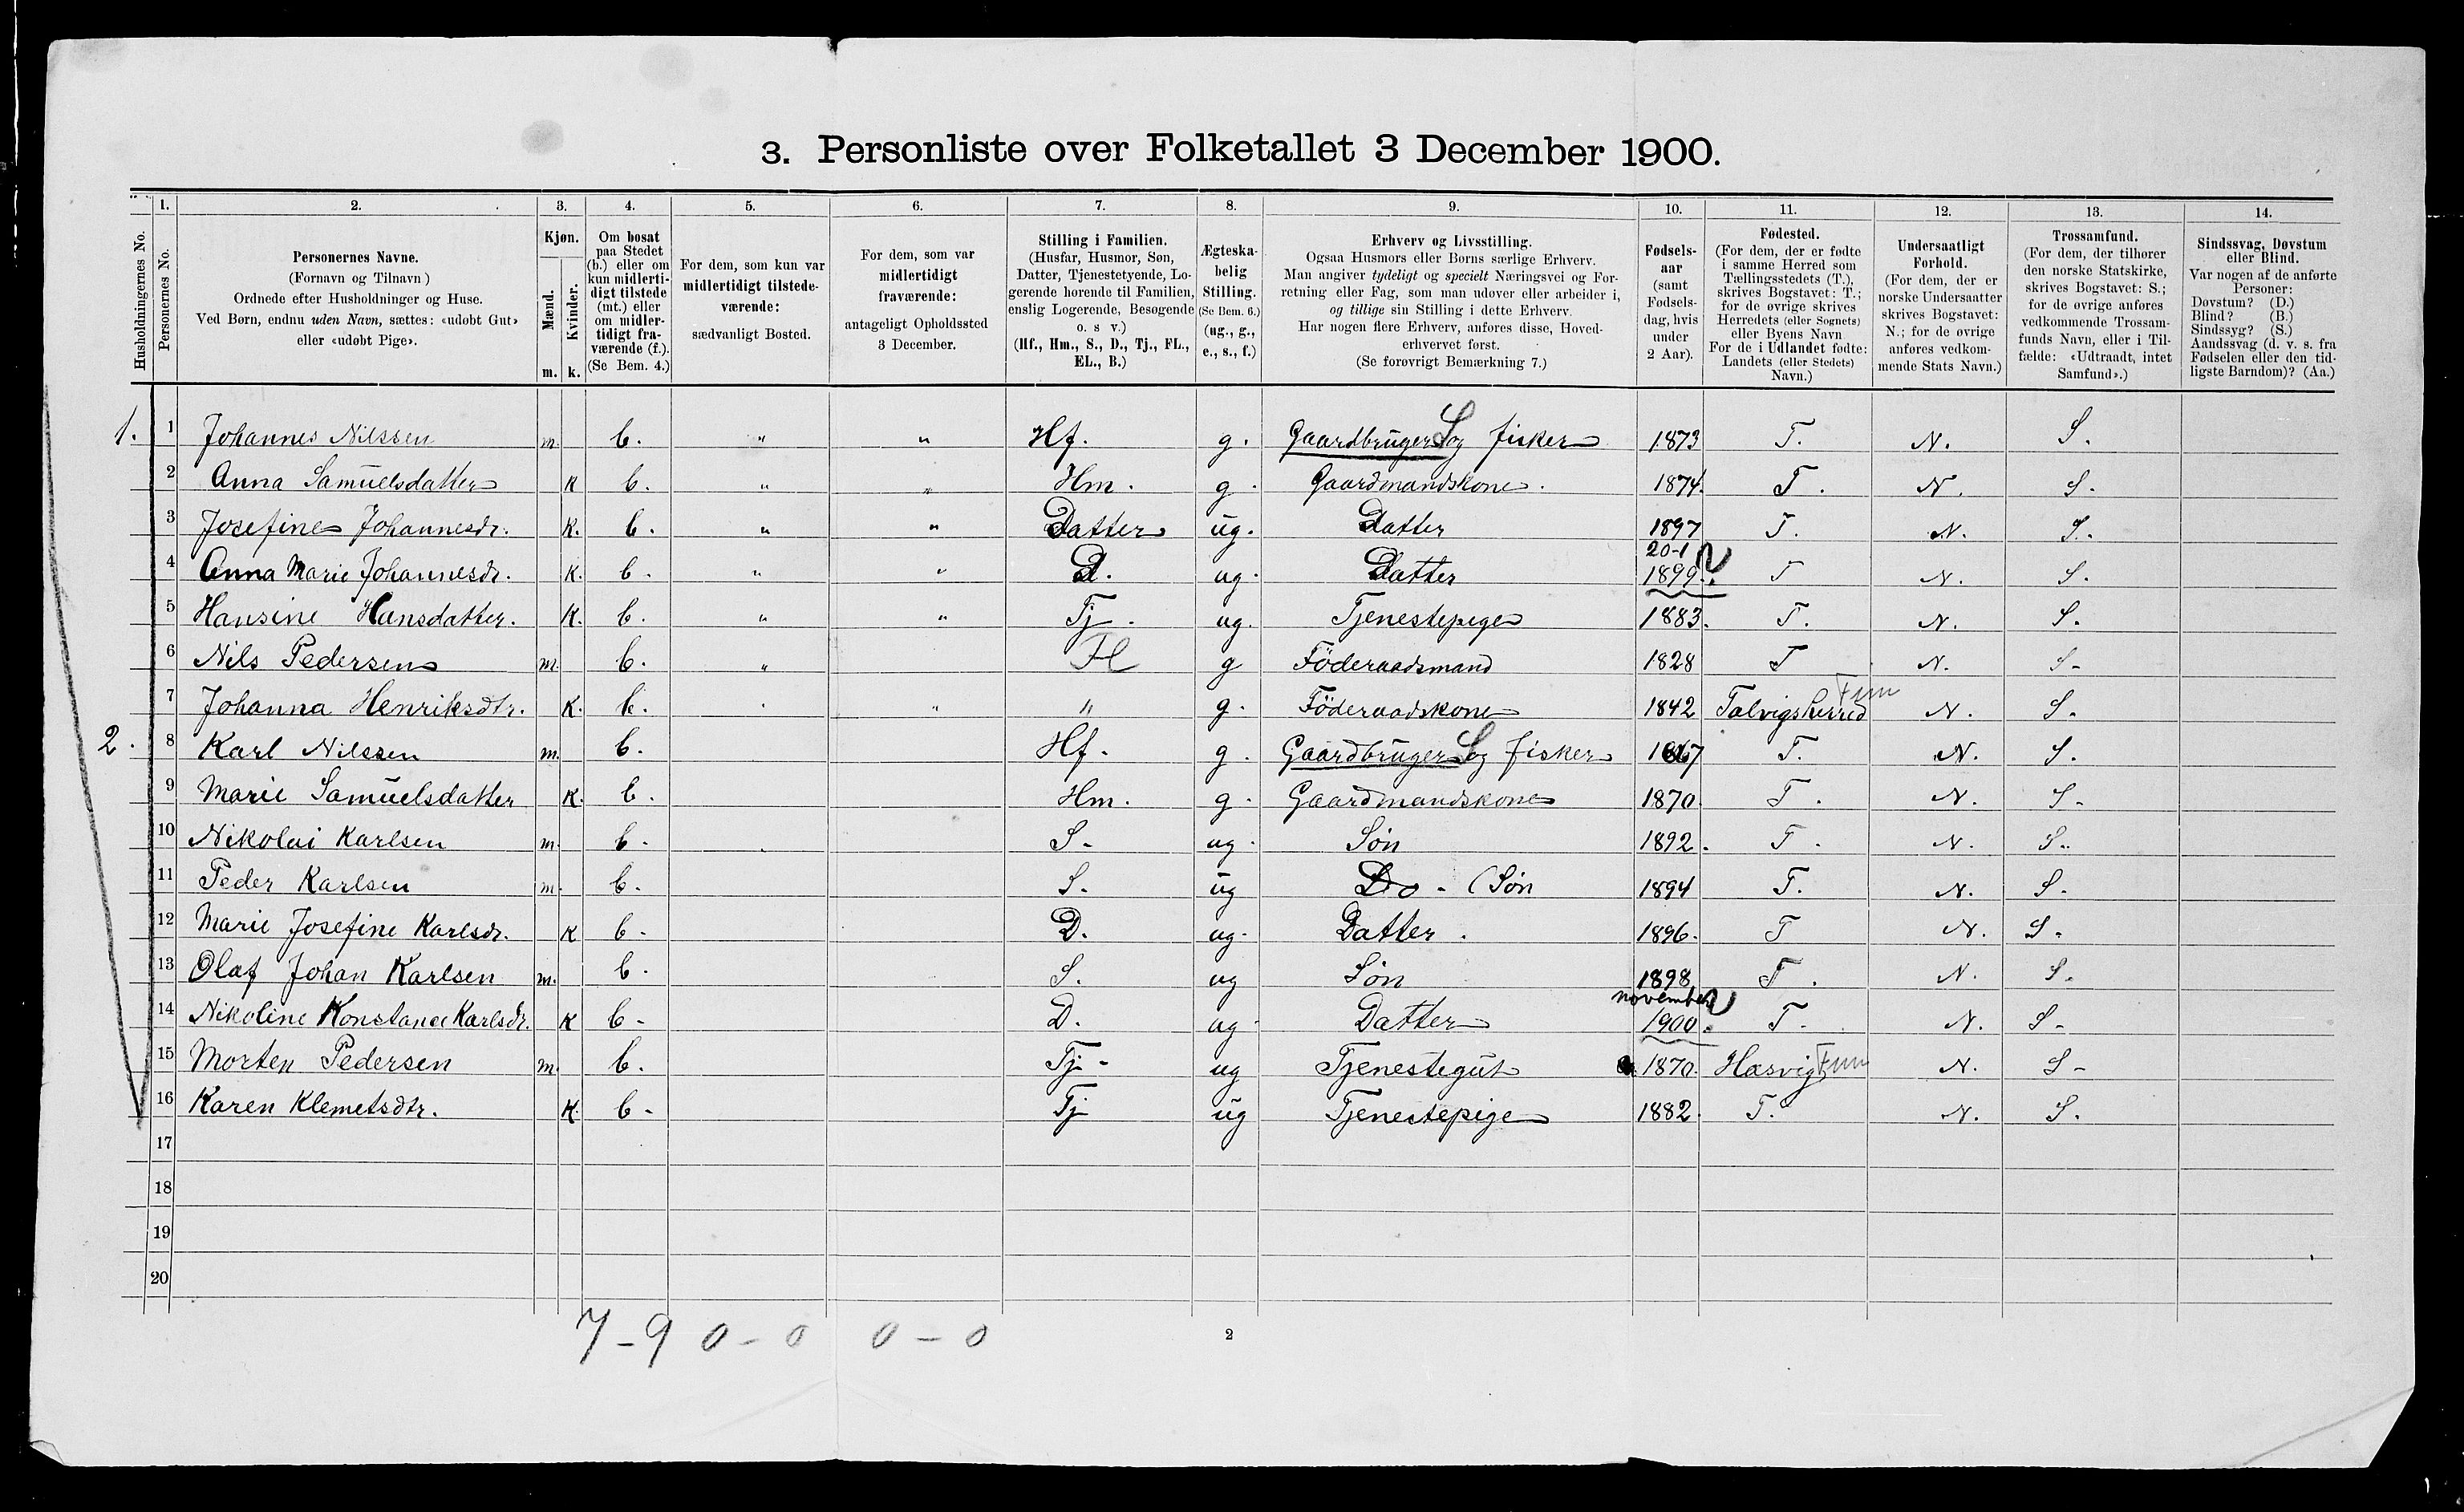 3. Personliste over Folketallet 3 December 1900.
1. 2. 3. 4. 5. 6. 7. 8. 9. 10. 11. 12. 13. 14.
Husholdningernes No.
Personernes No.
Personernes Navne.
(Fornavn og Tilnavn)
Ordnede efter Husholdninger og Huse.
Ved Børn, endnu uden Navn, sættes: «udøbt Gut»
eller «udøbt Pige».
Kjøn.
Mænd.
Kvinder.
m. k.
Om bosat
paa Stedet
(b.) eller om
kun midlerti-
digt tilstede
(mt.) eller
om midler-
tidigt fra-
værende (f.).
(Se Bem. 4.)
For dem, som kun var
midlertidigt tilstede-
værende:
sædvanligt Bosted.
For dem, som var
midlertidigt
fraværende:
antageligt Opholdssted
3 December.
Stilling i Familien.
(Husfar, Husmor, Søn,
Datter, Tjenestetyende, Lo-
gerende hørende til Familien,
enslig Logerende, Besøgende
o. s v.)
(Hf., Hm., S., D., Tj., FL.,
EL., B.)
Ægteska-
belig
Stilling.
(Se Bem. 6.)
(ug., g.,
e., s., f.)
Erhverv og Livsstilling.
Ogsaa Husmors eller Børns særlige Erhverv.
Man angiver tydeligt og specielt Næringsvei og For-
retning eller Fag, som man udøver eller arbeider i,
og tillige sin Stilling i dette Erhverv.
Har nogen flere Erhverv, anføres disse, Hoved-
erhvervet først.
(Se forøvrigt Bemærkning 7.)
Fødsels-
aar
(samt
Fødsels-
dag, hvis
under
2 Aar).
Fødested.
(For dem, der er fødte
i samme Herred som
Tællingsstedets (T.),
skrives Bogstavet: T.;
for de øvrige skrives
Herredets (eller Sognets)
eller Byens Navn
For de i Udlandet fødte:
Landets (eller Stedets)
Navn.)
Undersaatligt
Forhold.
(For dem, der er
norske Undersaatter
skrives Bogstavet:
N.; for de øvrige
anføres vedkom-
mende Stats Navn.)
Trossamfund.
(For dem, der tilhører
den norske Statskirke,
skrives Bogstavet: S.;
for de øvrige anføres
vedkommende Trossam-
funds Navn, eller i Til-
fælde: «Udtraadt, intet
Samfund».)
Sindssvag, Døvstum
eller Blind.
Var nogen af de anførte
Personer:
Døvstum? (D.)
Blind? (B.)
Sindssyg? (S.)
Aandssvag (d. v. s. fra
Fødselen eller den tid-
ligste Barndom)? (Aa.)
1. 1 Johannes Nilssen m. b. " " Hf. g. Gaardbruger S og fisker 1873 T. N. S.
2 Anna Samuelsdatter K b. " " Hm. g. Gaardmandskone. 1874. T. N. S.
3 Josefine Johannesdr. K. b. " " Datter ug. Datter 1897 T. N. S.
4 Anna Marie Johannesdr. K. b. " " D. ug. Datter 20-1 1899. T N. S.
5 Hansine Hansdatter. K. b. " " Tj. ug. Tjenestepige 1883. T. N. S.
6 Nils Pedersen m. b. " Fl g Föderaadsmand 1828 T N. S-
7 Johanna Henriksdtr. K. b. " " " g. Föderaadskone 1842 Talvigsherred Finm N. S.
2. 8 Karl Nilssen m. b. Hf. g. Gaardbruger S og fisker 1867 T. N. S.
9 Marie Samuelsdatter K. b. Hm. g. Gaardmandskone 1870 T. N. S.
10 Nikolai Karlsen m. b. S. ug. Søn 1892. T. N. S.
11 Peder Karlsen m. b. S. ug Do - (Søn 1894 T. N. S.
12 Marie Josefine Karlsdr. K b. D. ug. Datter. 1896. T N. S.
13 Olaf Johan Karlsen m. b. S. ug Søn 1898 T. N. S.
14 Nikoline Konstance Karlsdr. K b- D. ug. Datter november 1900. T. N. S-
15 Morten Pedersen m. b. Tj- ug Tjenestegut 1870. Hasvig Finm N. S-
16 Karen Klemetsdtr. K. b- Tj ug Tjenestepige 1882. T. N. S.
17
18
19
20
7-9 0-0 0-0
2